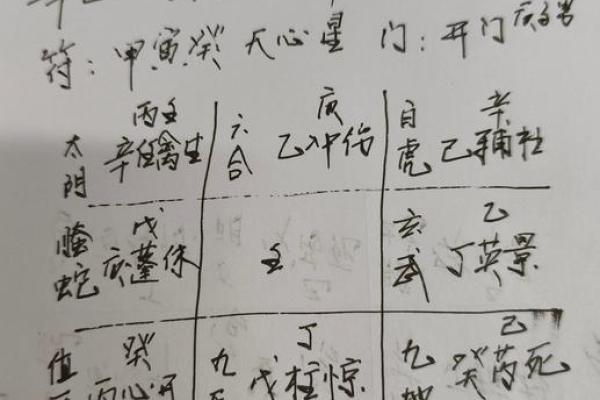 符：甲寅癸 天心星 门：开门
丙壬 庚 辛
太阴 辛任禽生 六合 乙冲伤 白虎 己辅杜
戊 乙
螣蛇 庚蓬休 壬 玄武 丁英景
癸 丁 己
值 丙心开 九 戊柱惊 九地 癸芮死